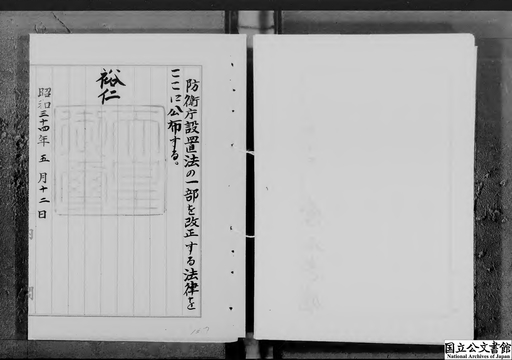 防衛庁設置法の一部を改正する法律を
ここに公布する。
裕仁
天皇御璽
昭和三十四年五月十二日
国立公文書館
National Archives of Japan